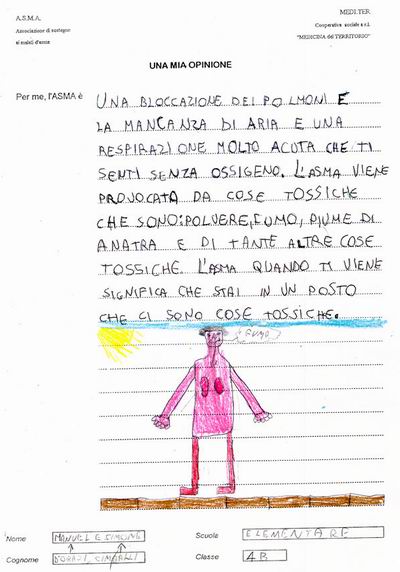 A.S.M.A.
Associazione di sostegno
ai malati d'asma
MEDI.TER.
Cooperativa sociale a r.l.
"MEDICINA del TERRITORIO"
UNA MIA OPINIONE
Per me, l'ASMA è
UNA BLOCCAZIONE DEI POLMONI E
LA MANCANZA DI ARIA E UNA
RESPIRAZIONE MOLTO ACUTA CHE TI
SENTI SENZA OSSIGENO. L'ASMA VIENE
PROVOCATA DA COSE TOSSICHE
CHE SONO: POLVERE, FUMO, PIUME DI
ANATRA E DI TANTE ALTRE COSE
TOSSICHE. L'ASMA QUANDO TI VIENE
SIGNIFICA CHE STAI IN UN POSTO
CHE CI SONO COSE TOSSICHE.
FUMO
Nome MANUEL E SIMONE
Scuola ELEMENTARE
Cognome
Classe 4B